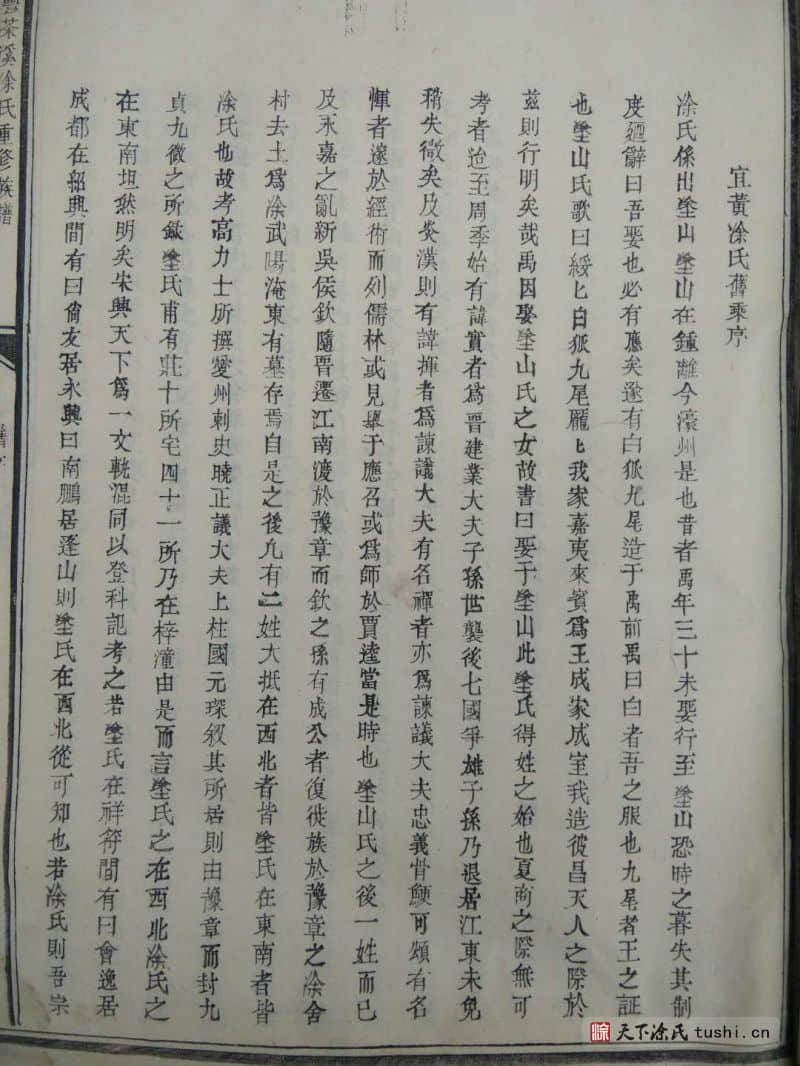 宜黃涂氏舊乘序
涂氏係出塗山塗山在鍾離今濠州是也昔者禹年三十未娶行至塗山恐時之暮失其制
度廼辭曰吾娶也必有應矣遂有白狐九尾造于禹前禹曰白者吾之服也九尾者王之証
也塗山氏歌曰綏匕白狐九尾龐匕我家嘉夷來賓為王成家成室我造彼昌天人之際於
茲則行明矣哉禹因娶塗山氏之女故書曰娶于塗山此塗氏得姓之始也夏商之際無可
考者迨至周季始有諱實者為晋建業大夫子孫世襲後七國爭雄子孫乃退居江東未免
稍失微矣及炎漢則有諱揮者為諫議大夫有名禪者亦為諫議大夫忠義骨鯁可頌有名
惲者邃於經術而列儒林或見舉于應召或為師於賈逵當是時也塗山氏之後一姓而已
及永嘉之亂新吳侯欽隨晋遷江南渡於豫章而欽之孫有成公者復徙族於豫章之涂舍
村去土為涂武陽淹東有墓存焉自是之後凢有二姓大抵在西北者皆塗氏在東南者皆
涂氏也故考高力士所撰愛州刺史曉正議大夫上柱國元琛叙其所居則由豫章而封九
貞九徵之所鐬塗氏甫有莊十所宅四十一所乃在梓潼由是而言塗氏之在西北涂氏之
在東南坦然明矣宋興天下為一文軌混同以登科記考之若塗氏在祥符間有曰會逸居
成都在紹興間有曰尚友居永興曰南鵬居蓬山則塗氏在西北從可知也若涂氏則吾宗
茶溪涂氏重修族譜
天下涂氏 tushi.cn